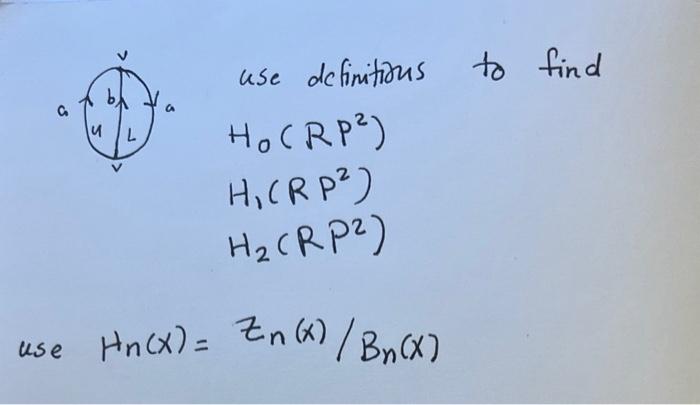 v
a b a
U L
v
use definitions to find
H₀(RP²)
H₁(RP²)
H₂(RP²)
use Hn(X) = Zn(X) / Bn(X)